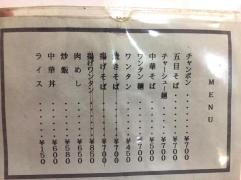 MENU
チャンポン・・・・¥700
五目そば・・・・¥700
チャーシュー麺・・・・¥700
中華そば・・・・¥500
ワンタン麺・・・・¥700
ワンタン・・・・¥500
焼きそば・・・・¥700
揚げそば・・・・¥700
揚げワンタン・・・・¥850
肉めし・・・・¥650
炒飯・・・・¥580
中華丼・・・・¥600
ライス・・・・¥150